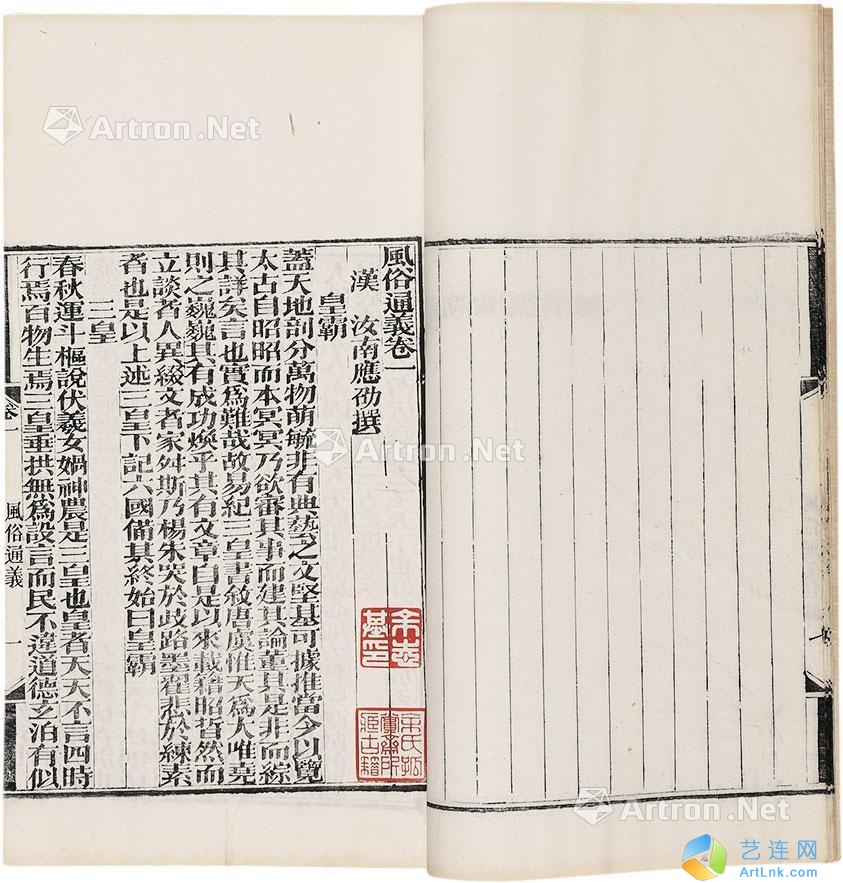 風俗通義卷一
漢 汝南應劭撰
皇霸
蓋天地剖分萬物萌毓非有典藝之文堅基可據推當今以覽
太古自昭昭而本冥冥乃欲審其事而建其論董其是非而綜
其詳矣言也實為難哉故易紀三皇書敘唐虞惟天為大唯堯
則之巍巍其有成功煥乎其有文章自是以來載籍昭晢然而
立談者人異綴文者家舛斯乃楊朱哭於歧路墨翟悲於練素
者也是以上述三皇下記六國備其終始曰皇霸
三皇
春秋運斗樞說伏羲女媧神農是三皇也皇者天天不言四時
行焉百物生焉三皇垂拱無為設言而民不違道德玄泊有似
卷一
風俗通義
一
余志
基印
宋氏
賞齋所
古籍
Artron.Net
Artron.Net
Artron.Net
艺连网
ArtLnk.com